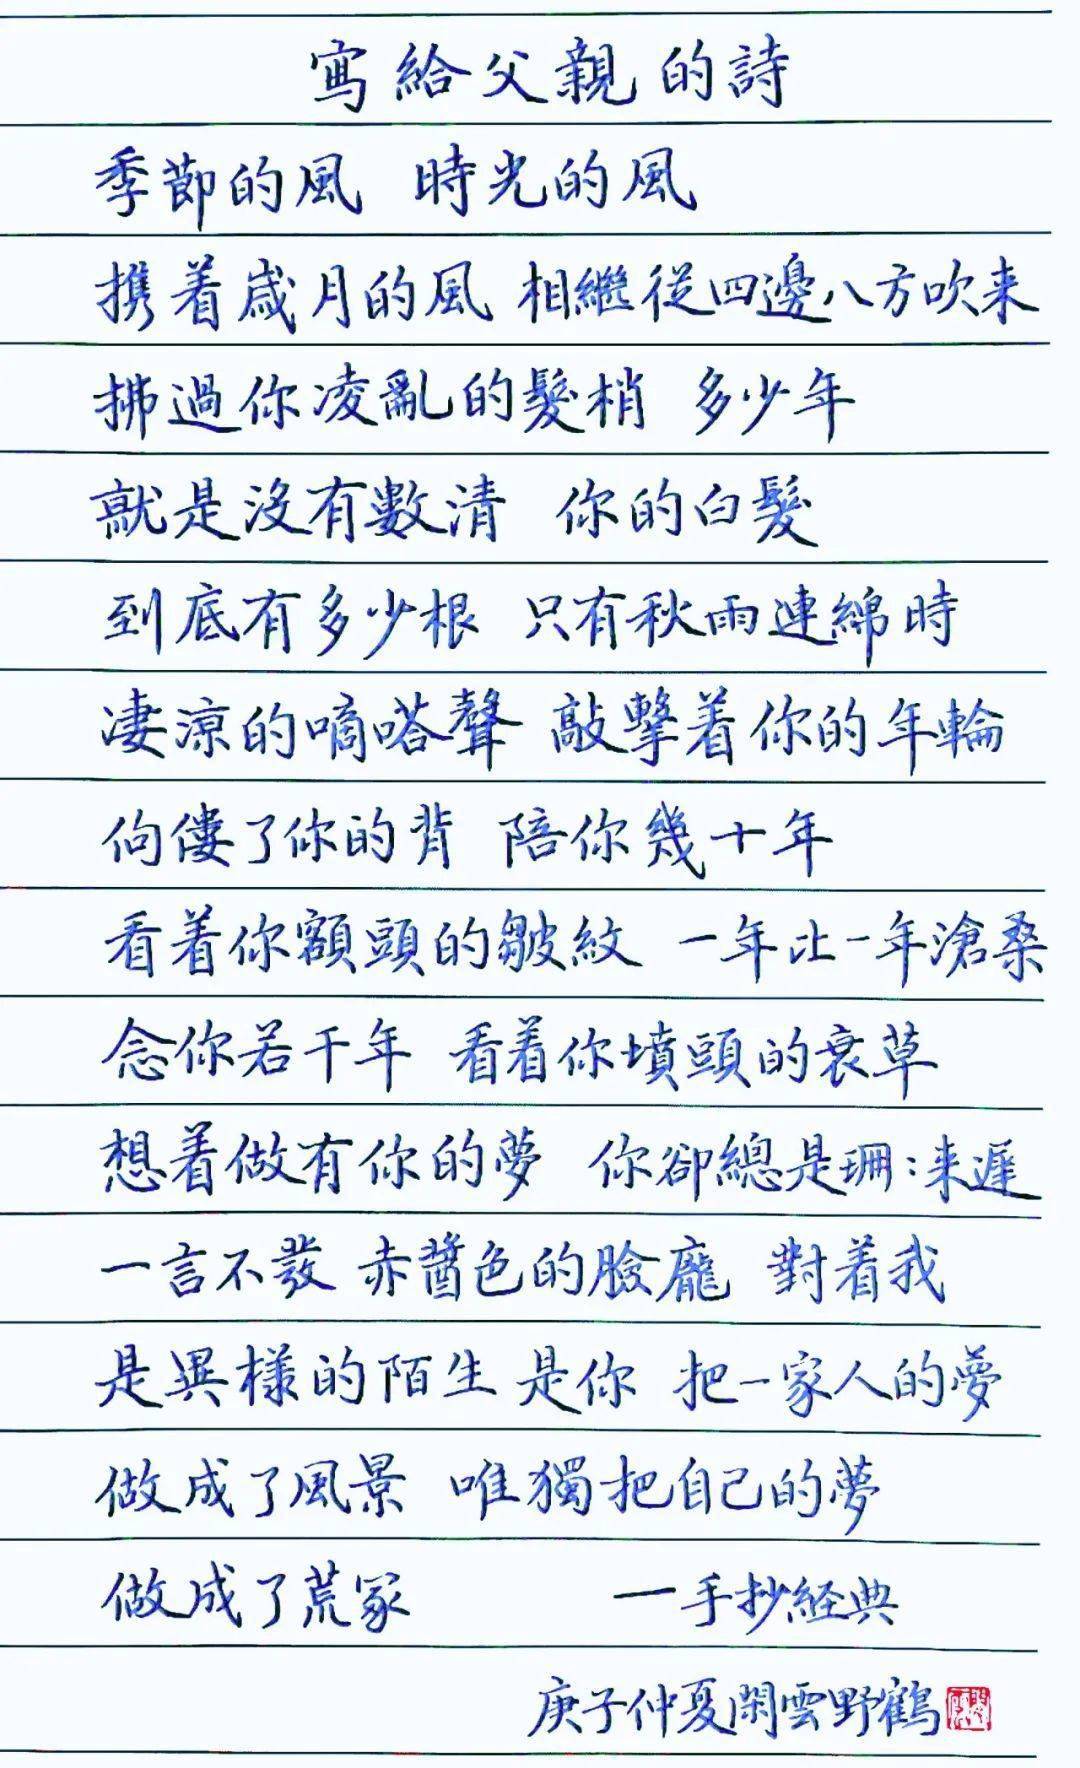 寫給父親的詩
季節的風 時光的風
携着歲月的風 相繼從四邊八方吹来
拂過你凌亂的髮梢 多少年
就是沒有數清 你的白髮
到底有多少根 只有秋雨連綿時
凄涼的嘀嗒聲 敲擊着你的年輪
佝僂了你的背 陪你幾十年
看着你額頭的皺紋 一年比一年滄桑
念你若干年 看着你墳頭的衰草
想着做有你的夢 你卻總是珊:来遲
一言不發 赤醬色的臉龐 對着我
是異樣的陌生 是你 把一家人的夢
做成了風景 唯獨把自己的夢
做成了荒冢 一手抄經典
庚子仲夏閑雲野鶴